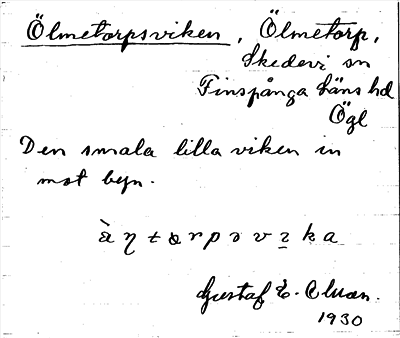 Ölmetorpsviken, Ölmetorp,
Skedevi sn
Finspånga läns hd
Ögl
Den smala lilla viken in
mot byn.
Gustaf E.
1930